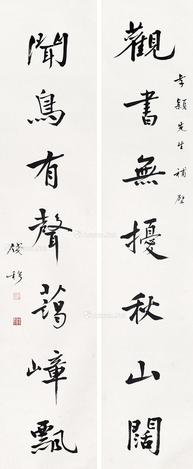 觀書無擾秋山闊
穎先生 補壁
聞鳥有聲藹嶂飄
錢穆